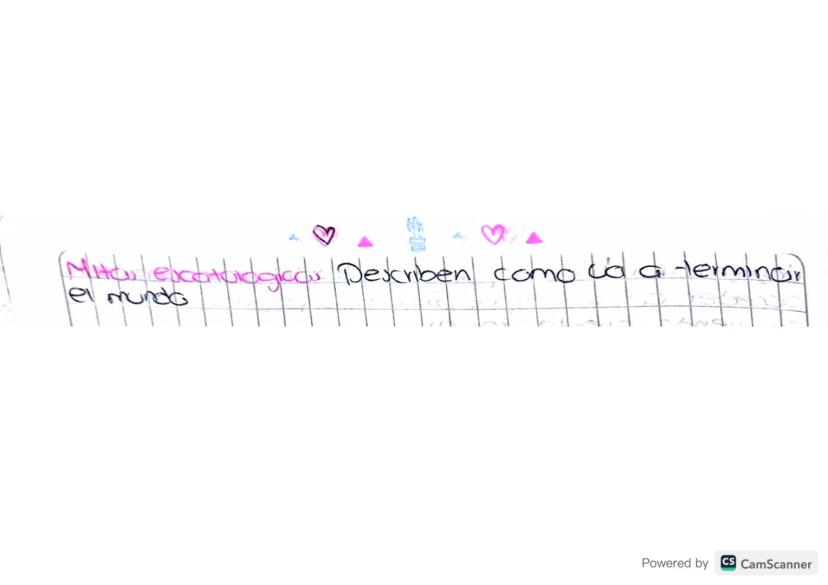 Mitos escatologicos Describen como va a terminar
el mundo
Powered by CS CamScanner